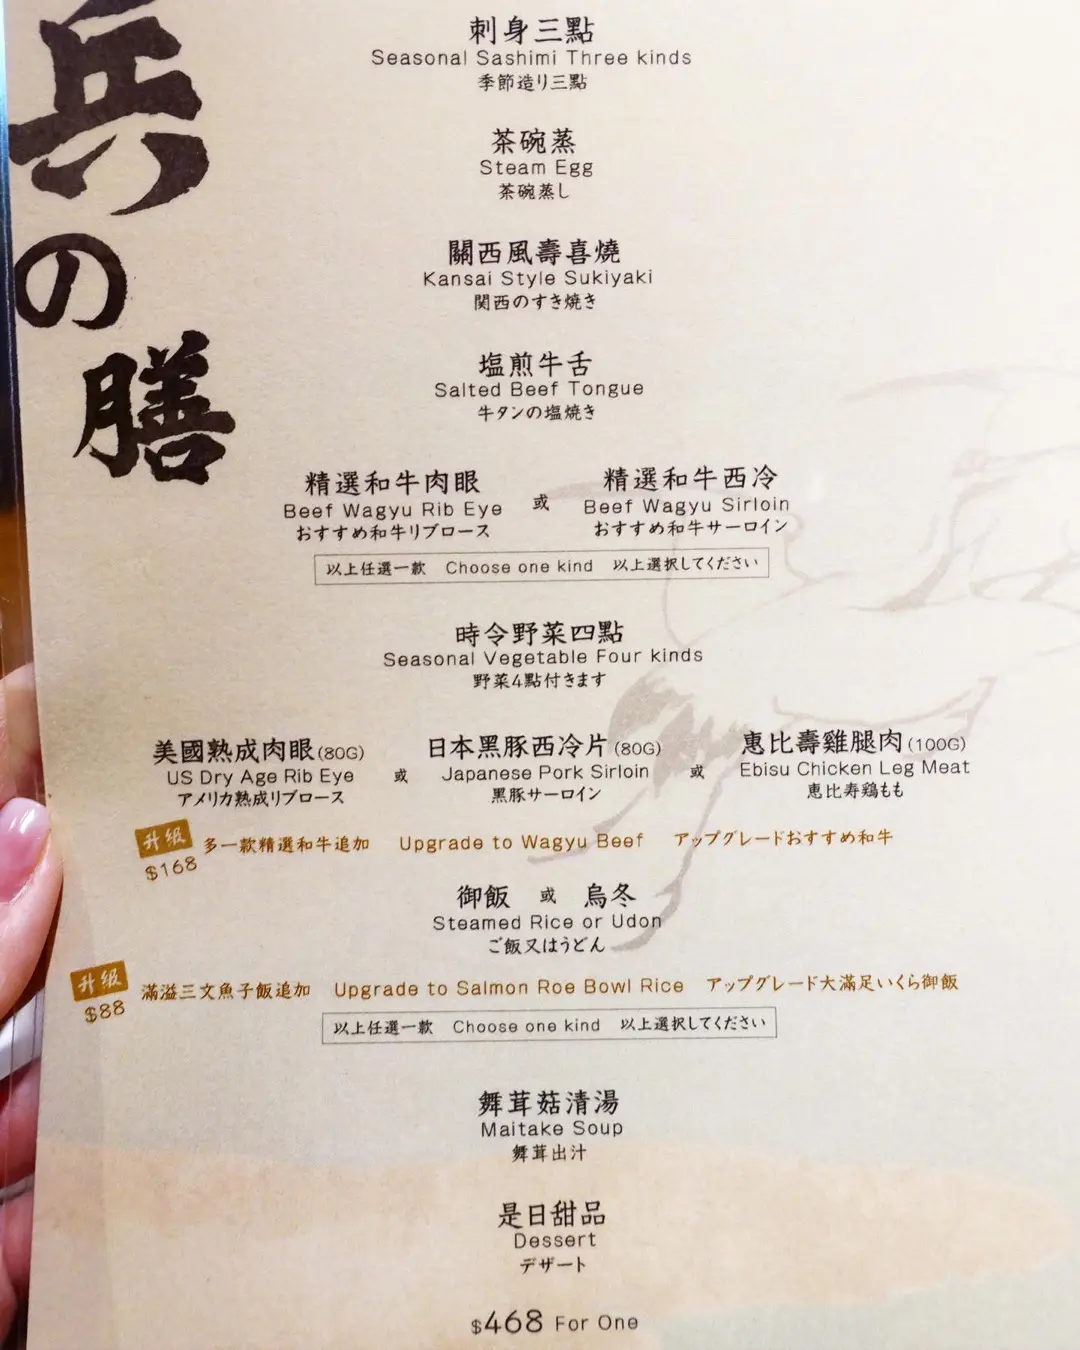 兵の膳
刺身三點
Seasonal Sashimi Three kinds
季節造り三點
茶碗蒸
Steam Egg
茶碗蒸し
關西風壽喜燒
Kansai Style Sukiyaki
関西のすき焼き
塩煎牛舌
Salted Beef Tongue
牛タンの塩焼き
精選和牛肉眼 或 精選和牛西冷
Beef Wagyu Rib Eye Beef Wagyu Sirloin
おすすめ和牛リブロース おすすめ和牛サーロイン
以上任選一款 Choose one kind 以上選択してください
時令野菜四點
Seasonal Vegetable Four kinds
野菜4點付きます
美國熟成肉眼(80G) 或 日本黑豚西冷片(80G) 或 惠比壽雞腿肉(100G)
US Dry Age Rib Eye Japanese Pork Sirloin Ebisu Chicken Leg Meat
アメリカ熟成リブロース 黒豚サーロイン 恵比寿鶏もも
升級 多一款精選和牛追加 Upgrade to Wagyu Beef アップグレードおすすめ和牛
$168
御飯 或 烏冬
Steamed Rice or Udon
ご飯又はうどん
升級 滿溢三文魚子飯追加 Upgrade to Salmon Roe Bowl Rice アップグレード大滿足いくら御飯
$88
以上任選一款 Choose one kind 以上選択してください
舞茸菇清湯
Maitake Soup
舞茸出汁
是日甜品
Dessert
デザート
$468 For One